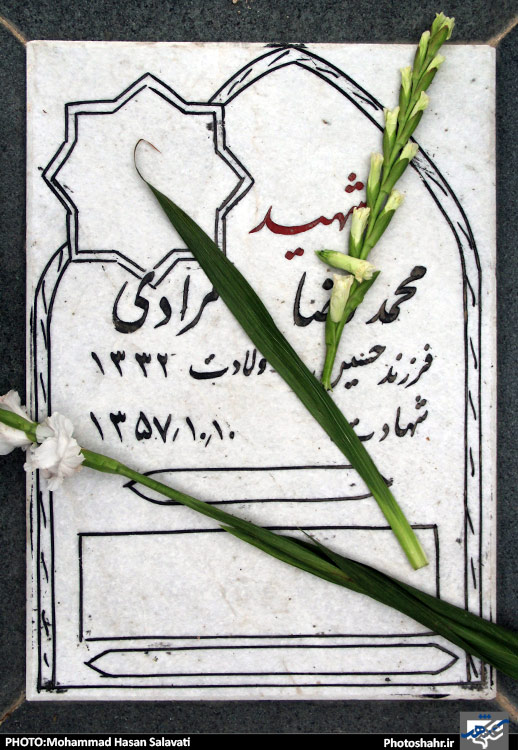 شهید
محمد رضا مرادی
فرزند حسین ولادت ۱۳۳۲
شهادت ۱۳۵۷٫۱۰٫۱۰
PHOTO:Mohammad Hasan Salavati
Photoshahr.ir